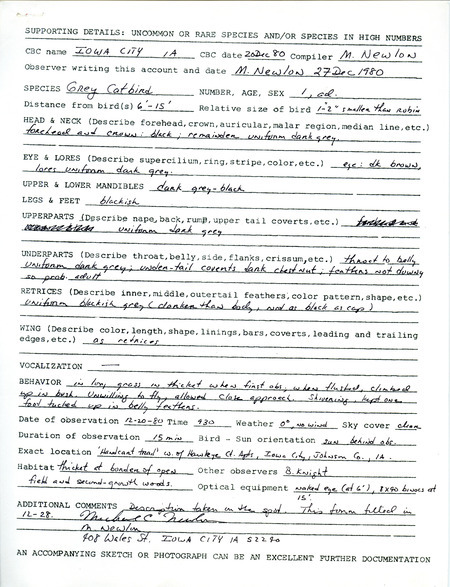 SUPPORTING DETAILS: UNCOMMON OR RARE SPECIES AND/OR SPECIES IN HIGH NUMBERS
CBC name IOWA CITY IA CBC date 20 Dec 80 Compiler M. Newlon
Observer writing this account and date M. Newlon 27 Dec 1980
SPECIES Grey Catbird NUMBER, AGE, SEX 1, ad.
Distance from bird(s) 6'-15' Relative size of bird 1-2" smaller than robin
HEAD & NECK (Describe forehead, crown, auricular, malar region, median line, etc.)
forehead and crown: black; remainder uniform dark grey.
EYE & LORES (Describe supercilium, ring, stripe, color, etc.) eye: dk brown,
lores uniform dark grey.
UPPER & LOWER MANDIBLES dark grey-black
LEGS & FEET blackish
UPPERPARTS (Describe nape, back, rump, upper tail coverts, etc.)
uniform dark grey
UNDERPARTS (Describe throat, belly, side, flanks, crissum, etc.) throat to belly
uniform dark grey; under-tail coverts dark chestnut; feathers not downy
so prob. adult
RETRICES (Describe inner, middle, outertail feathers, color pattern, shape, etc.)
uniform blackish grey (darker than body, not as black as cap)
WING (Describe color, length, shape, linings, bars, coverts, leading and trailing
edges, etc.) as retrices
VOCALIZATION —
BEHAVIOR in low grass in thicket when first obs, when flushed, climbed
up in bush. Unwilling to fly, allowed close approach. Shivering, kept one
foot tucked up in belly feathers.
Date of observation 12-20-80 Time 930 Weather 0°, no wind Sky cover clear
Duration of observation 15 min Bird - Sun orientation sun behind obs.
Exact location "Hawkeye Ct. Apts, Iowa City, Johnson Co. IA.
Habitat thicket at border of open Other observers B. Knight
field and second-growth woods. Optical equipment naked eye (at 6'), 8x40 binocs at
15'.
ADDITIONAL COMMENTS Description taken on the spot. This form filled in
12-28. Michael C. Newlon
M. Newlon
408 Wales St. IOWA CITY IA 52240
AN ACCOMPANYING SKETCH OR PHOTOGRAPH CAN BE AN EXCELLENT FURTHER DOCUMENTATION